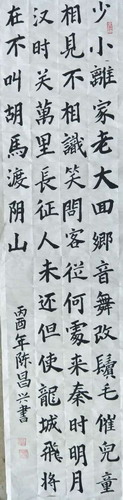 少小離家老大回鄉音舞改鬢毛催兒童
相見不相識笑問客從何處来秦时明月
汉时关萬里長征人未还但使龍城飛将
在不叫胡馬渡阴山
丙酉年陈昌兴書